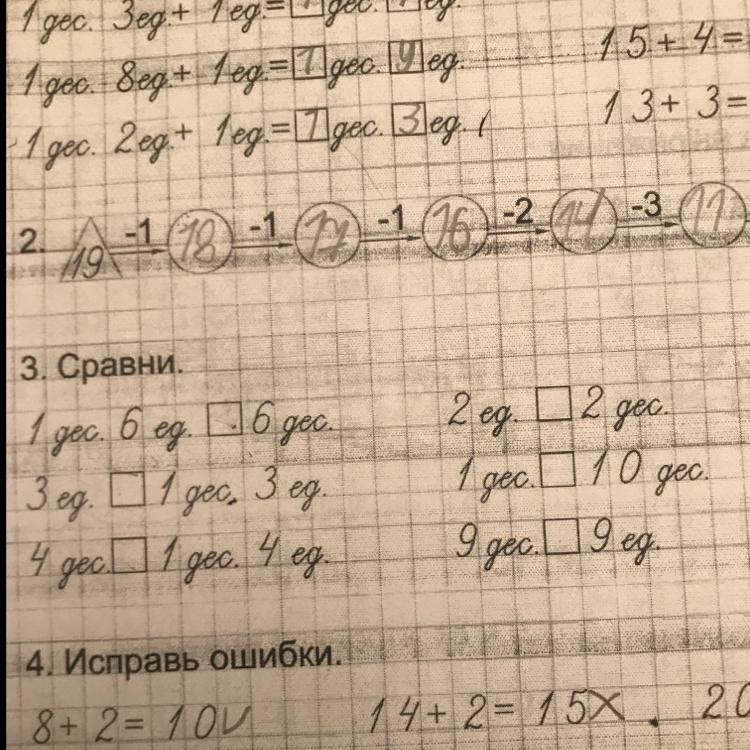 1 дес. 3 ед. + 1 ед. = дес. ед.
1 дес. 8 ед. + 1 ед. = 1 дес. 9 ед. 15 + 4 =
1 дес. 2 ед. + 1 ед. = 1 дес. 3 ед. 13 + 3 =
2. 19 -1 18 -1 17 -1 16 -2 14 -3 11
3. Сравни.
1 дес. 6 ед. □ 6 дес. 2 ед. □ 2 дес.
3 ед. □ 1 дес. 3 ед. 1 дес. □ 10 дес.
4 дес. □ 1 дес. 4 ед. 9 дес. □ 9 ед.
4. Исправь ошибки.
8 + 2 = 10 14 + 2 = 15 20